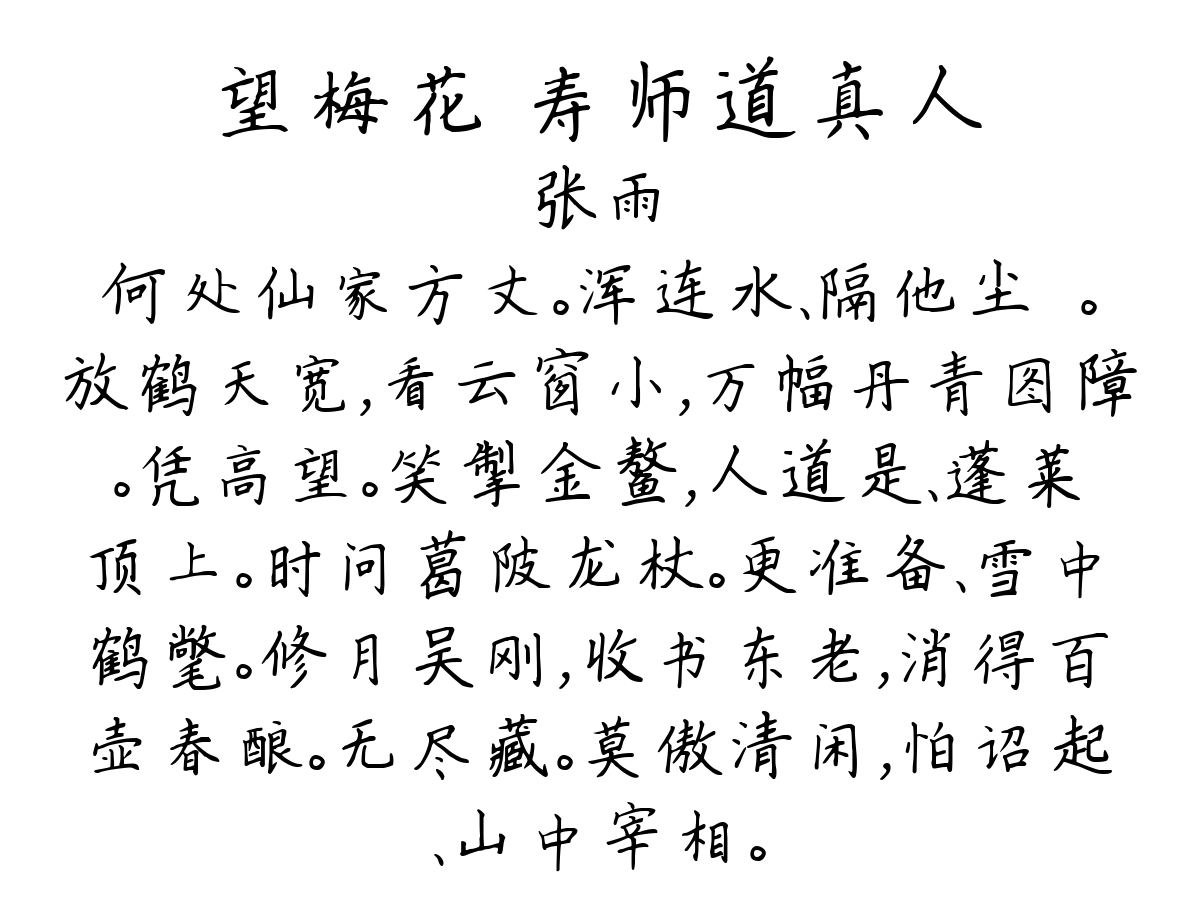 望梅花 寿师道真人
张雨
何处仙家方丈。浑连水、隔他尘 。
放鹤天宽,看云窗小,万幅丹青图障
。凭高望。笑掣金鳌,人道是、蓬莱
顶上。时问葛陂龙杖。更准备、雪中
鹤氅。修月吴刚,收书东老,消得百
壶春酿。无尽藏。莫傲清闲,怕诏起
、山中宰相。